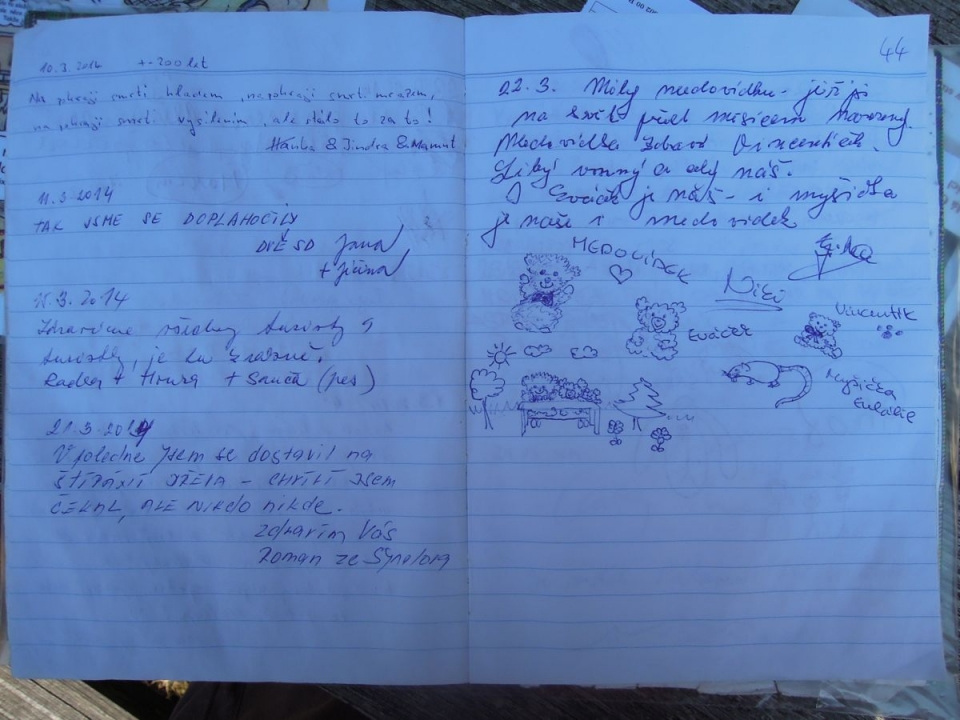 10.3.2014 +-200 let
Na pokraji smrti hladem, na pokraji smrti mrazem,
na pokraji smrti vysílením, ale stálo to za to!
Hánka & Jindra & Mamut
11.3.2014
TAK JSME SE DOPLAHOČILY
Jana
+ Jiřina
15.3.2014
Zdravíme všechny turisty
turistky, je tu krásně.
Radka + Honza + (pes)
21.3.2014
V poledne jsem se dostavil na
- CHVÍLI JSEM
ČEKAL, ALE NIKDO NIKDE.
zdravím Vás
Roman ze
44
22.3. Milý medovídku - jejž jsi
na světě před měsícem narozený.
Medovídka zdraví Vincentík.
Líbý vonný a celý náš.
I Eváček je náš - i myšička
je naše i medovídek
MEDOVÍDEK
Niki
Vincentík
Eváček
Myšička
Eulálie